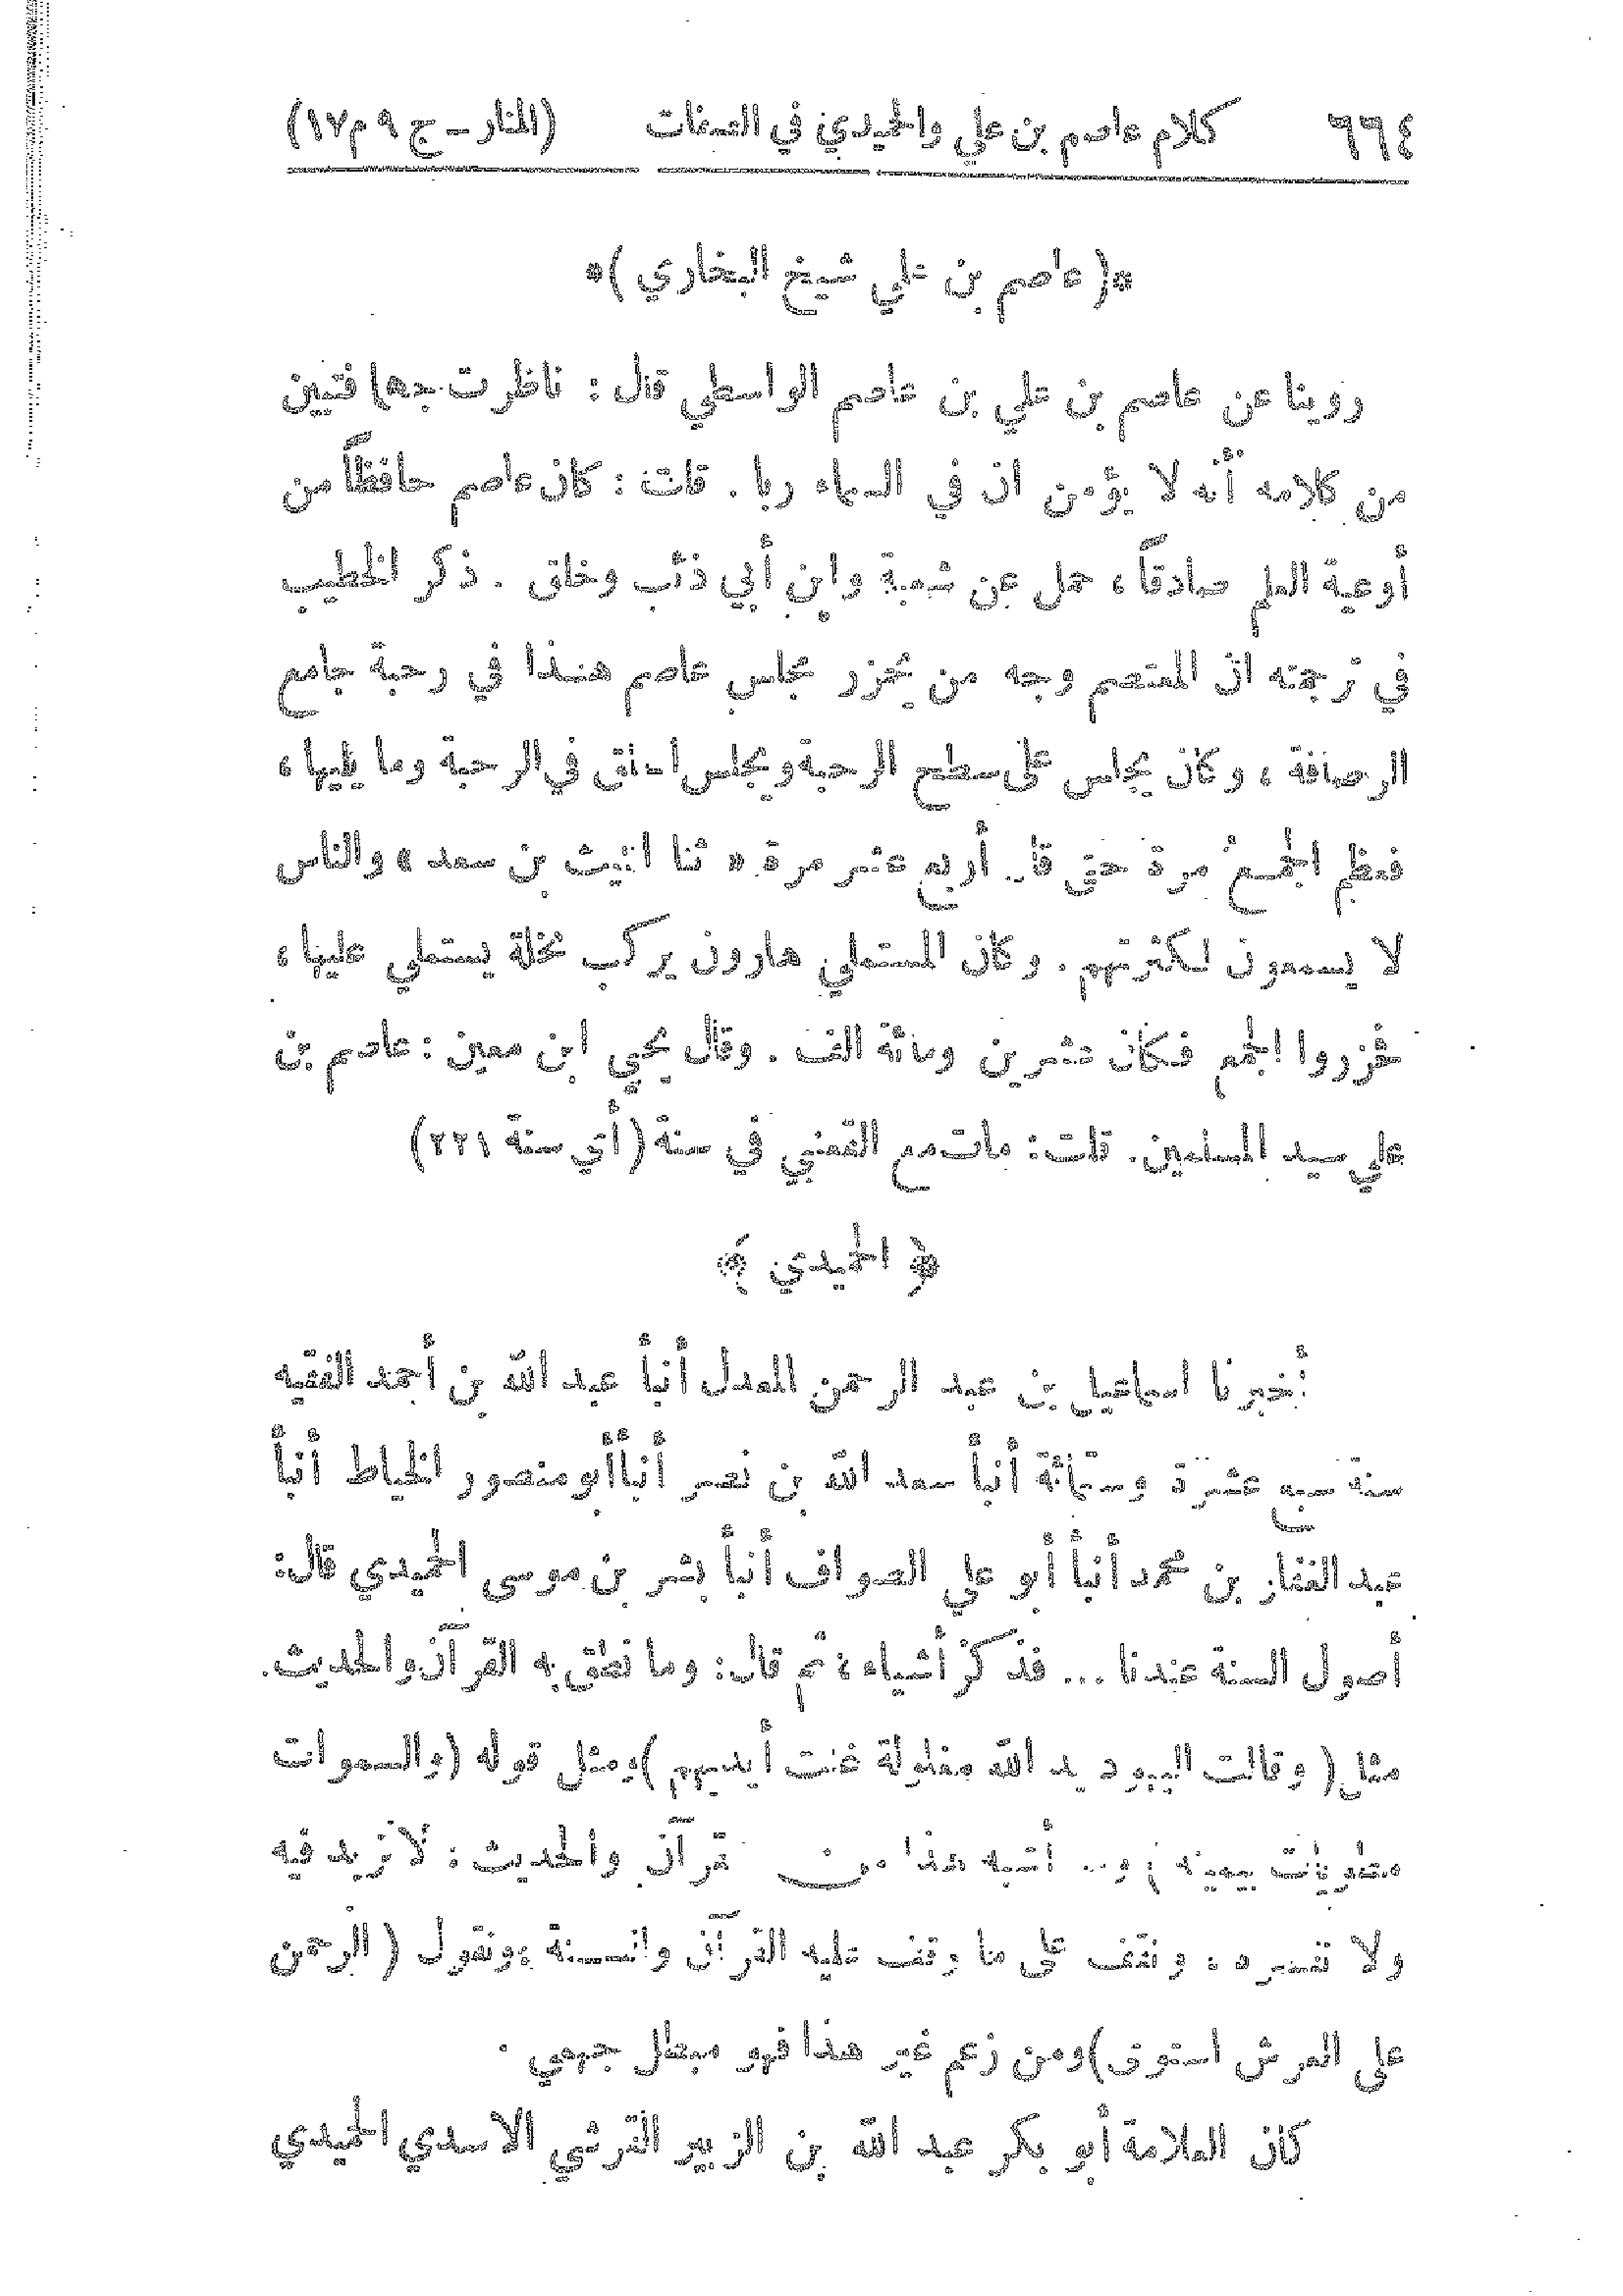 ٦٦٤ كلام عاصم بن علي والحميدي في الصفات (المنار ــ ج ٩ م ١٧)
*( عاصم بن علي شيخ البخاري )*
روينا عن عاصم بن علي بن عاصم الواسطي قال : ناظرت جهما فتبين
من كلامه أنه لا يؤمن ان في السماء ربا . قلت : كان عاصم حافظاً من
أوعية العلم صادقاً ، حمل عن شعبة وابن أبي ذئب وخلق . ذكر الخطيب
في ترجمته ان المعتصم وجه من يحزر مجلس عاصم هذا في رحبة جامع
الرصافة ، وكان يجلس على سطح الرحبة ويجلس الخلق في الرحبة وما يليها ،
فعظم الجمع مرة حتى قال أربع عشر مرة « ثنا الليث بن سعد » والناس
لا يسمعون لكثرتهم . وكان المستملي هارون يركب نخلة يستملي عليها ،
فحزروا الجمع فكان عشرين ومائة الف . وقال يحيى ابن معين : عاصم بن
علي سيد المسلمين . قلت : مات مع القعنبي في سنة ( أي سنة ٢٢١ )
﴿ الحميدي ﴾
أخبرنا اسماعيل بن عبد الرحمن المعدل أنبأ عبد الله بن أحمد الفقيه
سنة سبع عشرة وستمائة أنبأ سعد الله بن نصر أنبأ أبو منصور الخياط أنبأ
عبد الغفار بن محمد أنبأ أبو علي الصواف أنبأ بشر بن موسى الحميدي قال :
أصول السنة عندنا ... فذكر أشياء ، ثم قال : وما نطق به القرآن والحديث
مثل ( وقالت اليهود يد الله مغلولة غلت أيديهم ) ومثل قوله ( والسموات
مطويات بيمينه ) و أشبه هذا من القرآن والحديث : لا نزيد فيه
ولا نفسره ، ونقف على ما وقف عليه القرآن والسنة ، ونقول ( الرحمن
على العرش استوى ) ومن زعم غير هذا فهو مبطل جهمي .
كان العلامة أبو بكر عبد الله بن الزبير القرشي الاسدي الحميدي